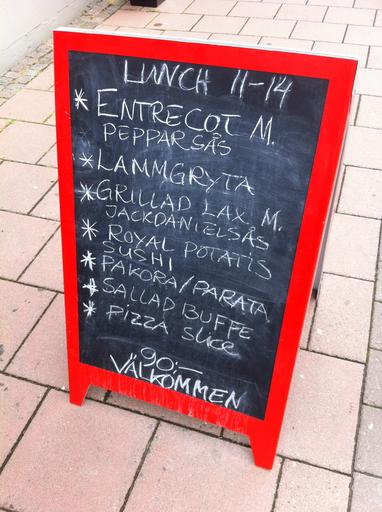 LUNCH 11-14
* ENTRECOT M.
PEPPARSÅS
* LAMMGRYTA
* GRILLAD LAX. M.
JACKDANIELSÅS
* ROYAL POTATIS
* SUSHI
* PAKORA/PARATA
* SALLAD BUFFE
* PIZZA SLICE
90:-
VÄLKOMMEN